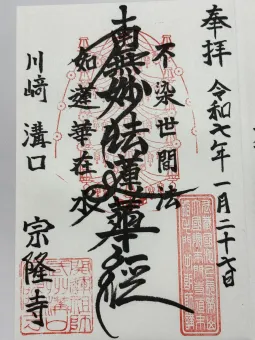 奉拝 令和七年一月二十六日
不染世間法
南無妙法蓮華経
如蓮華在水
川崎 溝口 宗隆寺